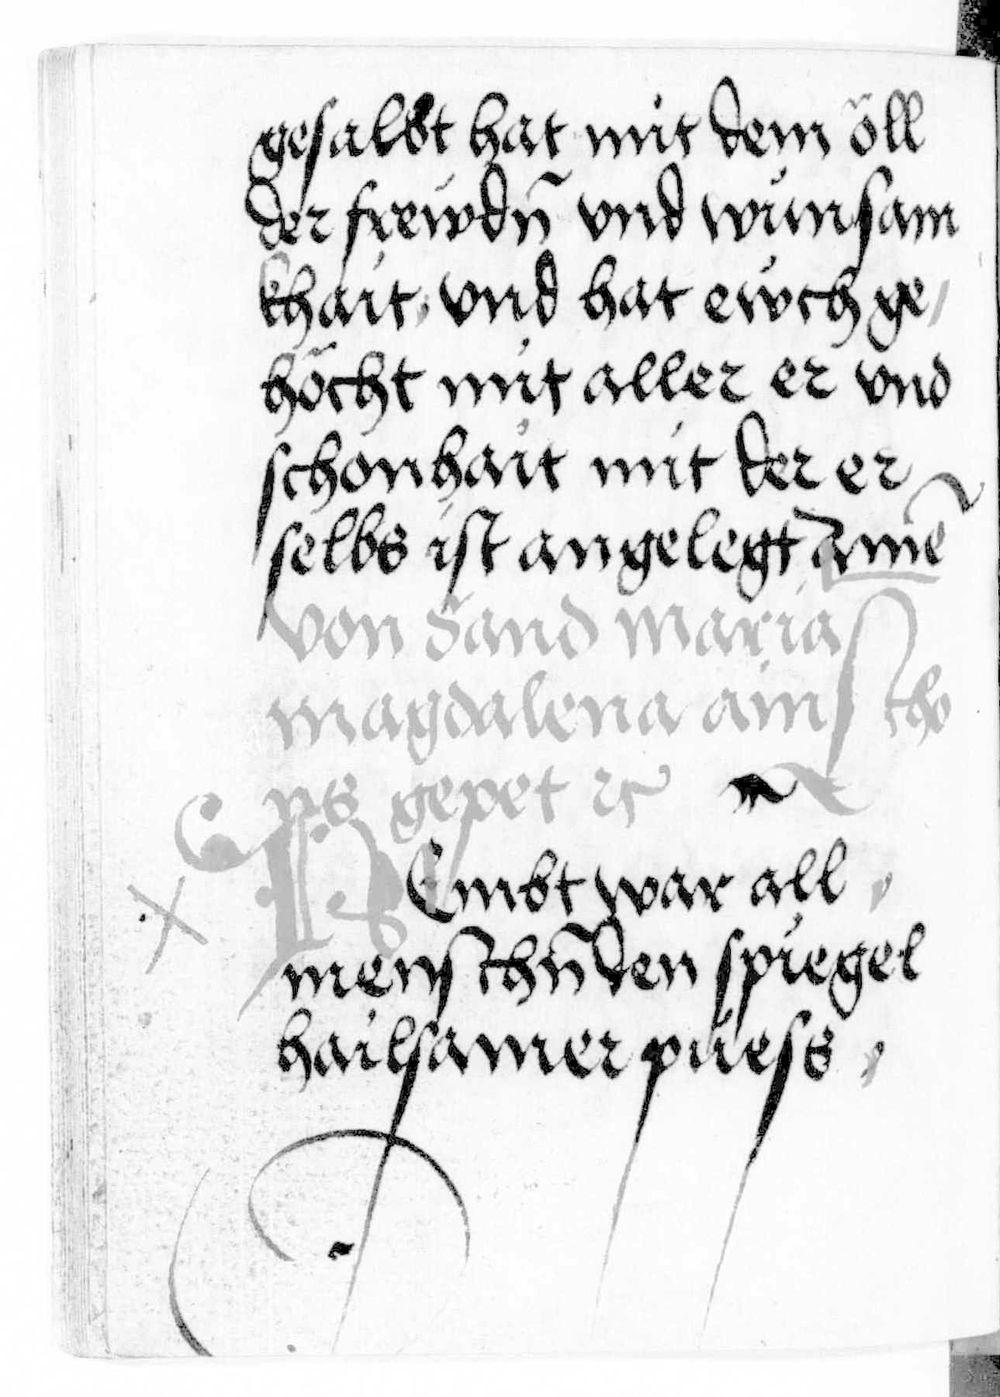 gesalbt hat mit dem öll
der frewdn̄ vnd wunsam
khait, vnd hat ewch ge/
höcht mit aller er vnd
schonhait mit der er
selbs ist angelegt Amē
von sand maria
magdalena ain scho
ns gepet ꝛc
Nembt war all
menschn̄ den spiegel
hailsamer puess